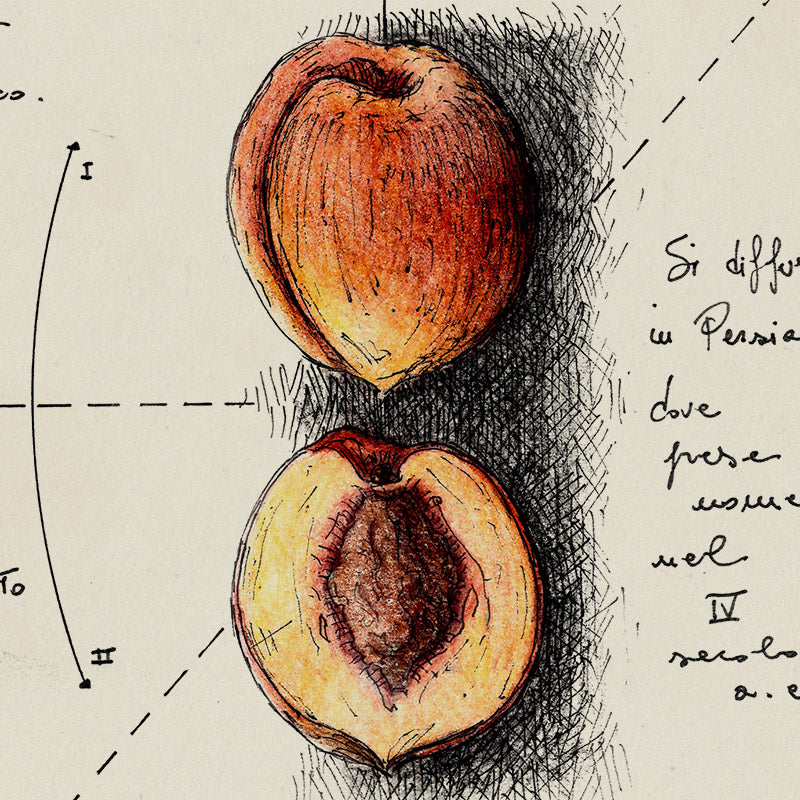 co.
I
II
To
Si diffu
in Persia
dove
prese
nome
nel
IV
secolo
a. c